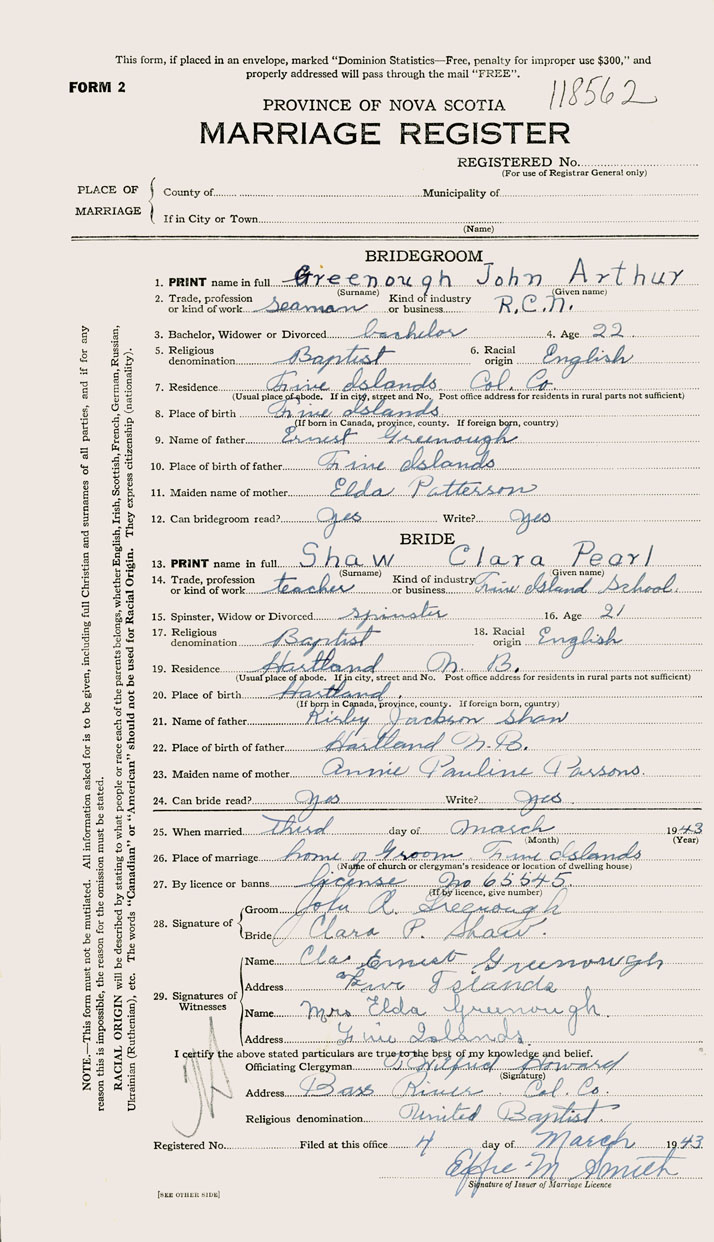 This form, if placed in an envelope, marked “Dominion Statistics—Free, penalty for improper use $300,” and
properly addressed will pass through the mail “FREE”.
FORM 2
118562
PROVINCE OF NOVA SCOTIA
MARRIAGE REGISTER
REGISTERED No.
(For use of Registrar General only)
PLACE OF MARRIAGE
County of Municipality of
If in City or Town
(Name)
BRIDEGROOM
1. PRINT name in full Greenough John Arthur
(Surname) (Given name)
2. Trade, profession or kind of work seaman Kind of industry or business R.C.N.
3. Bachelor, Widower or Divorced bachelor 4. Age 22
5. Religious denomination Baptist 6. Racial origin English
7. Residence Five Islands Col. Co.
(Usual place of abode. If in city, street and No. Post office address for residents in rural parts not sufficient)
8. Place of birth Five Islands
(If born in Canada, province, county. If foreign born, country)
9. Name of father Ernest Greenough
10. Place of birth of father Five Islands
11. Maiden name of mother Elda Patterson
12. Can bridegroom read? yes Write? yes
BRIDE
13. PRINT name in full Shaw Clara Pearl
(Surname) (Given name)
14. Trade, profession or kind of work teacher Kind of industry or business Five Island School.
15. Spinster, Widow or Divorced spinster 16. Age 21
17. Religious denomination Baptist 18. Racial origin English
19. Residence Hartland N. B.
(Usual place of abode. If in city, street and No. Post office address for residents in rural parts not sufficient)
20. Place of birth Hartland.
(If born in Canada, province, county. If foreign born, country)
21. Name of father Kirby Jackson Shaw
22. Place of birth of father Hartland N.B.
23. Maiden name of mother Annie Pauline Parsons.
24. Can bride read? yes Write? yes.
25. When married third day of March 1943
(Month) (Year)
26. Place of marriage home of Groom Five Islands
(Name of church or clergyman's residence or location of dwelling house)
27. By licence or banns license No 65545
(If by licence, give number)
28. Signature of
Groom John A. Greenough
Bride Clara P. Shaw.
29. Signatures of Witnesses
Name Ernest Greenough
Address Five Islands
Name Mrs Elda Greenough.
Address Five Islands.
I certify the above stated particulars are true to the best of my knowledge and belief.
Officiating Clergyman Wilfred Howard
(Signature)
Address Bass River. Col. Co.
Religious denomination United Baptist.
Registered No. Filed at this office 4 day of March 1943
Effie M Smith
Signature of Issuer of Marriage Licence
[SEE OTHER SIDE]
NOTE.—This form must not be mutilated. All information asked for is to be given, including full Christian and surnames of all parties, and if for any
reason this is impossible, the reason for the omission must be stated.
RACIAL ORIGIN will be described by stating to what people or race each of the parents belongs, whether English, Irish, Scottish, French, German, Russian,
Ukrainian (Ruthenian), etc. The words “Canadian” or “American” should not be used for Racial Origin. They express citizenship (nationality).